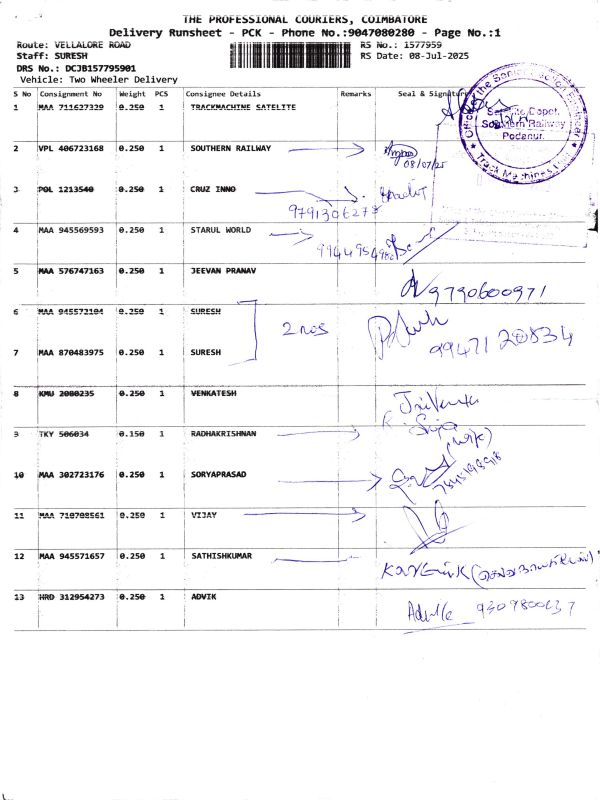 THE PROFESSIONAL COURIERS, COIMBATORE
Delivery Runsheet - PCK - Phone No.:9047080280 - Page No.:1
Route: VELLALORE ROAD RS No.: 1577959
Staff: SURESH RS Date: 08-Jul-2025
DRS No.: DCJB157795901
Vehicle: Two Wheeler Delivery
S No Consignment No Weight PCS Consignee Details Remarks Seal & Signature
1 MAA 711627329 0.250 1 TRACKMACHINE SATELITE
Depot,
Southern Railway
Podanur.
Track Machines
2 VPL 406723168 0.250 1 SOUTHERN RAILWAY
08/07/25
3 POL 1213540 0.250 1 CRUZ INNO
4 MAA 945569593 0.250 1 STARUL WORLD
5 MAA 576747163 0.250 1 JEEVAN PRANAV
9790600971
6 MAA 945572104 0.250 1 SURESH
2 nos
99471 20834
7 MAA 870483975 0.250 1 SURESH
8 KMU 2080235 0.250 1 VENKATESH
9 TKY 506034 0.150 1 RADHAKRISHNAN
(wife)
10 MAA 302723176 0.250 1 SORYAPRASAD
11 MAA 710708561 0.250 1 VIJAY
12 MAA 945571657 0.250 1 SATHISHKUMAR
13 HRD 312954273 0.250 1 ADVIK